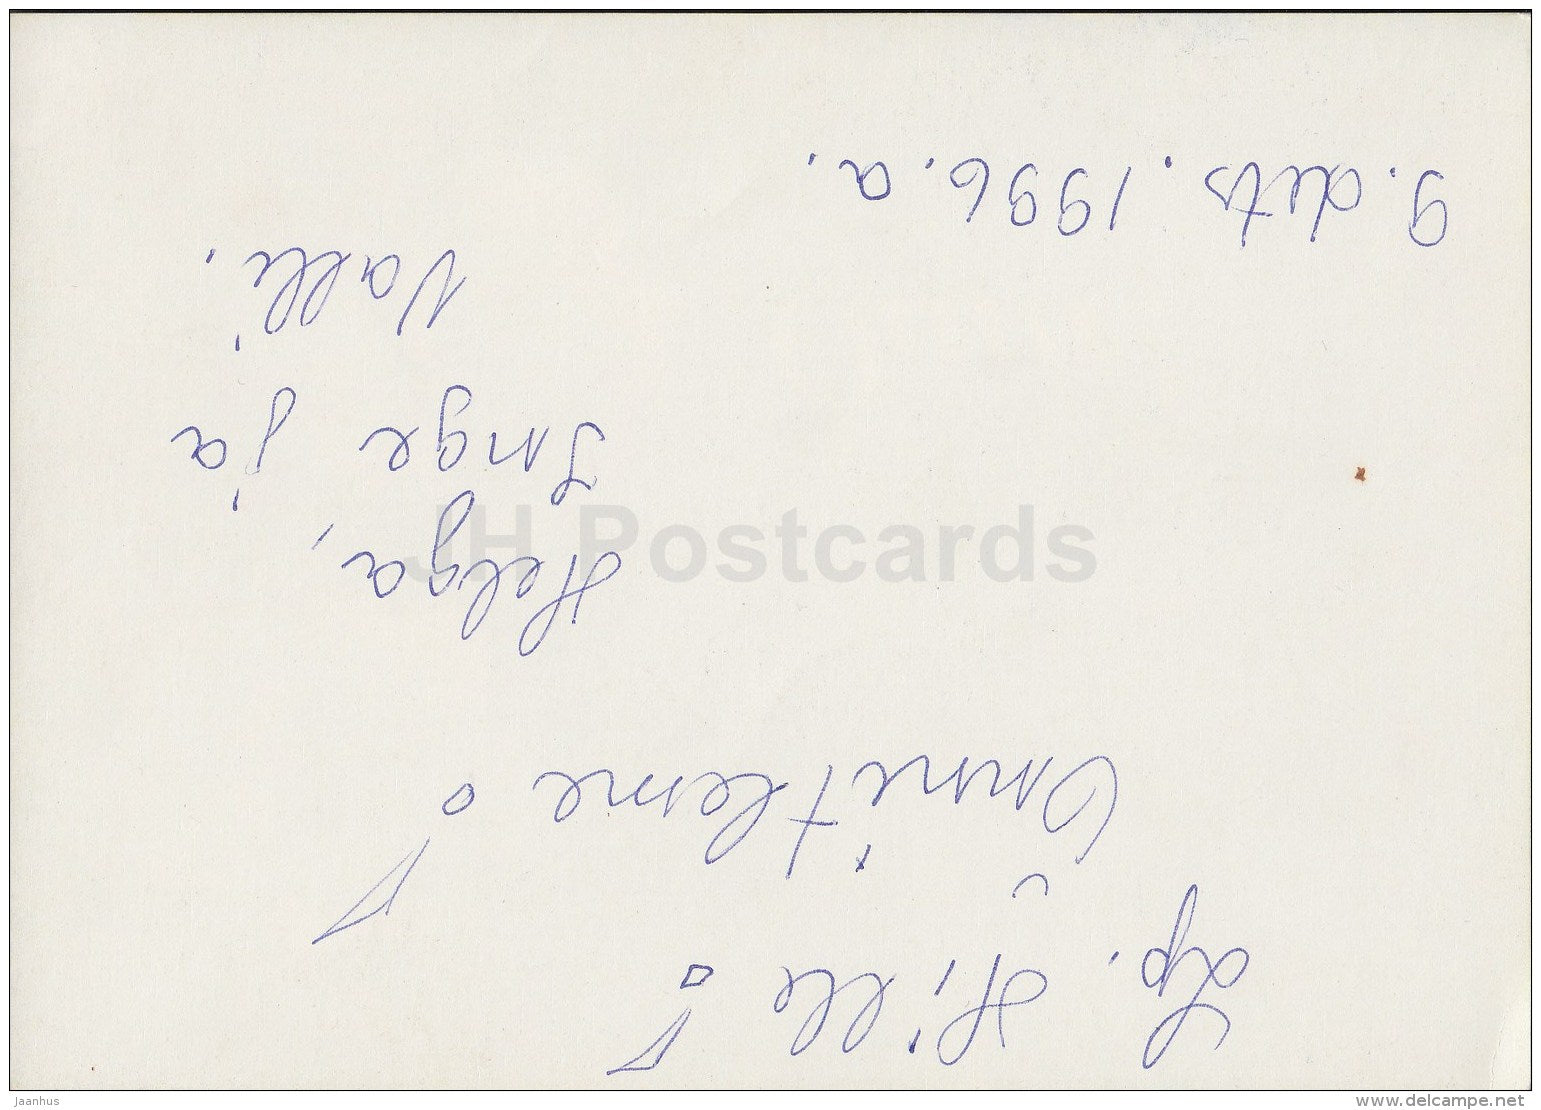 Lp. Hille!
Õnnitleme!
Helga,
Inge ja
Valli.
9. dets. 1996. a.
JH Postcards
Jaanhus
www.delcampe.net